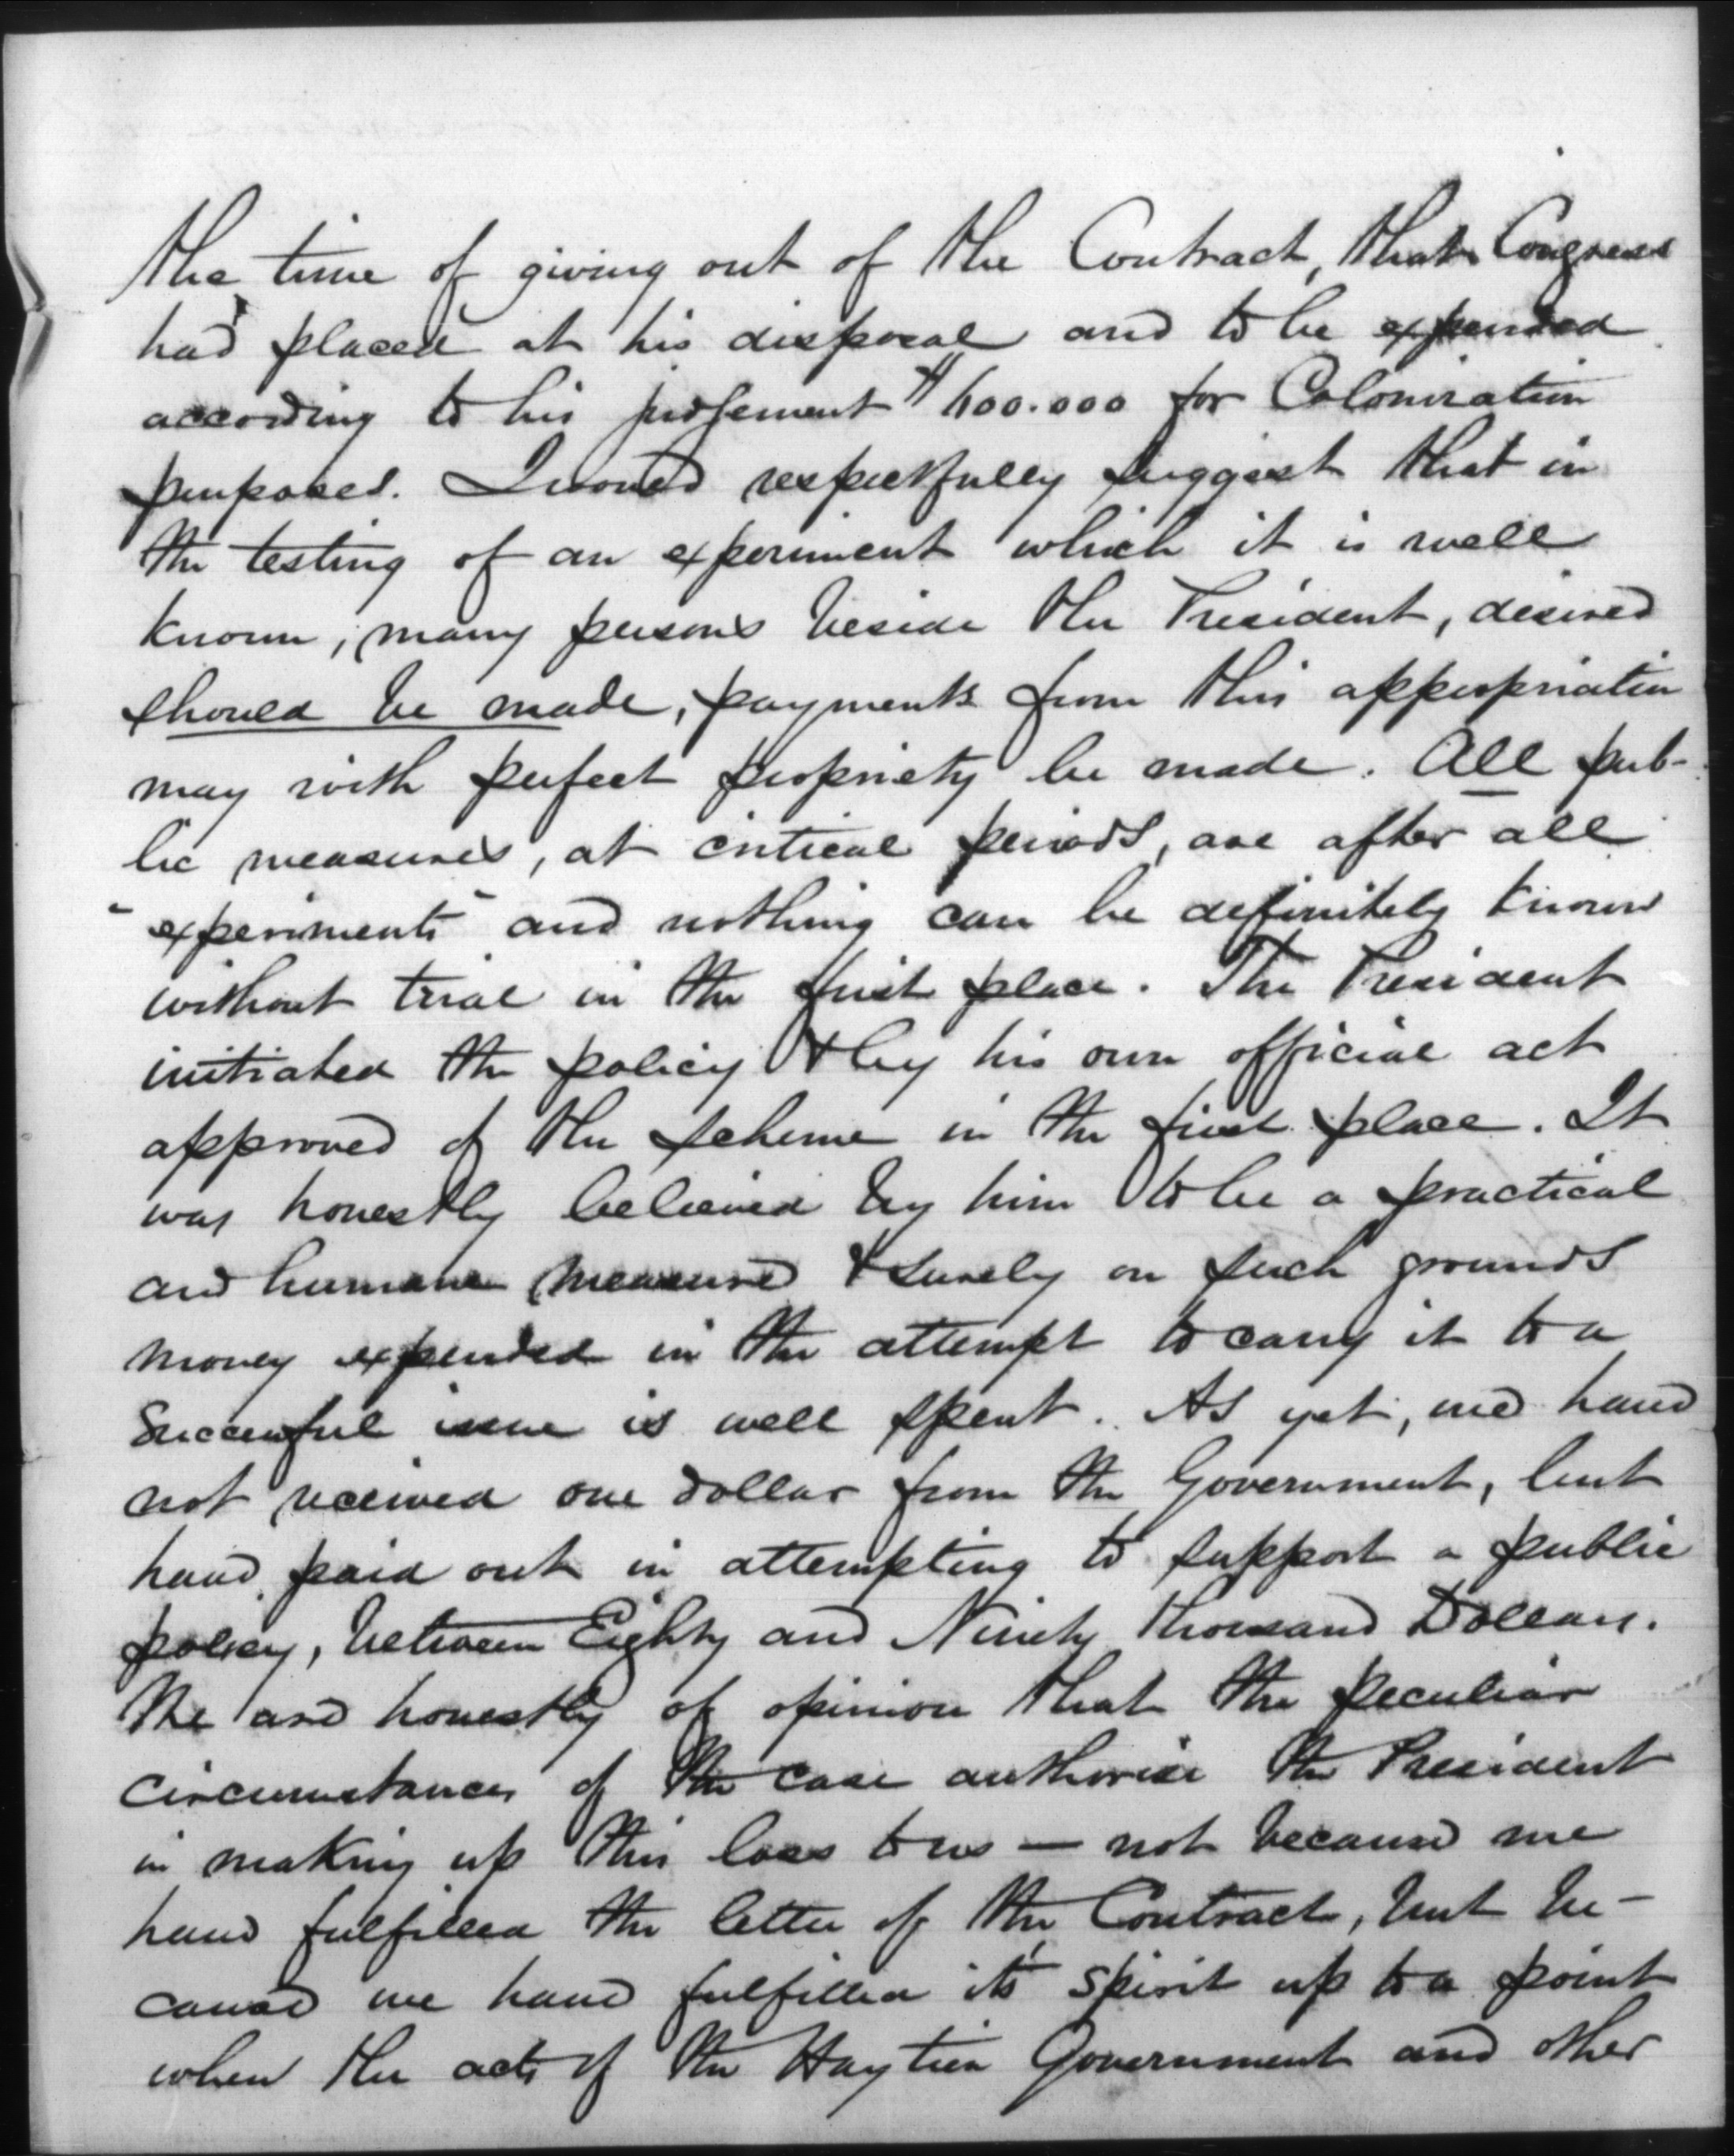 the time of giving out of the Contract, that Congress
had placed at his disposal and to be expended
according to his judgement $600.000 for Colonization
purposes. I would respectfully suggest that in
the testing of an experiment which it is well
known, many persons beside the President, desired
should be made, payments from this appropriation
may with perfect propriety be made. All pub-
lic measures, at critical periods, are after all
"experiments" and nothing can be definitely known
without trial in the first place. The President
initiated the policy & by his own official act
approved of the scheme in the first place. It
was honestly believed by him to be a practical
and humane measure & surely on such grounds
money expended in the attempt to carry it to a
Successful issue is well spent. As yet, we have
not received one dollar from the Government, but
have paid out in attempting to support a public
policy, between Eighty and Ninety Thousand Dollars.
We are honestly of opinion that the peculiar
circumstances of the case authorise the President
in making up this loss to us — not because we
have fulfilled the letter of the Contract, but be-
cause we have fulfilled it's spirit up to a point
when the acts of the Haytien Government and other